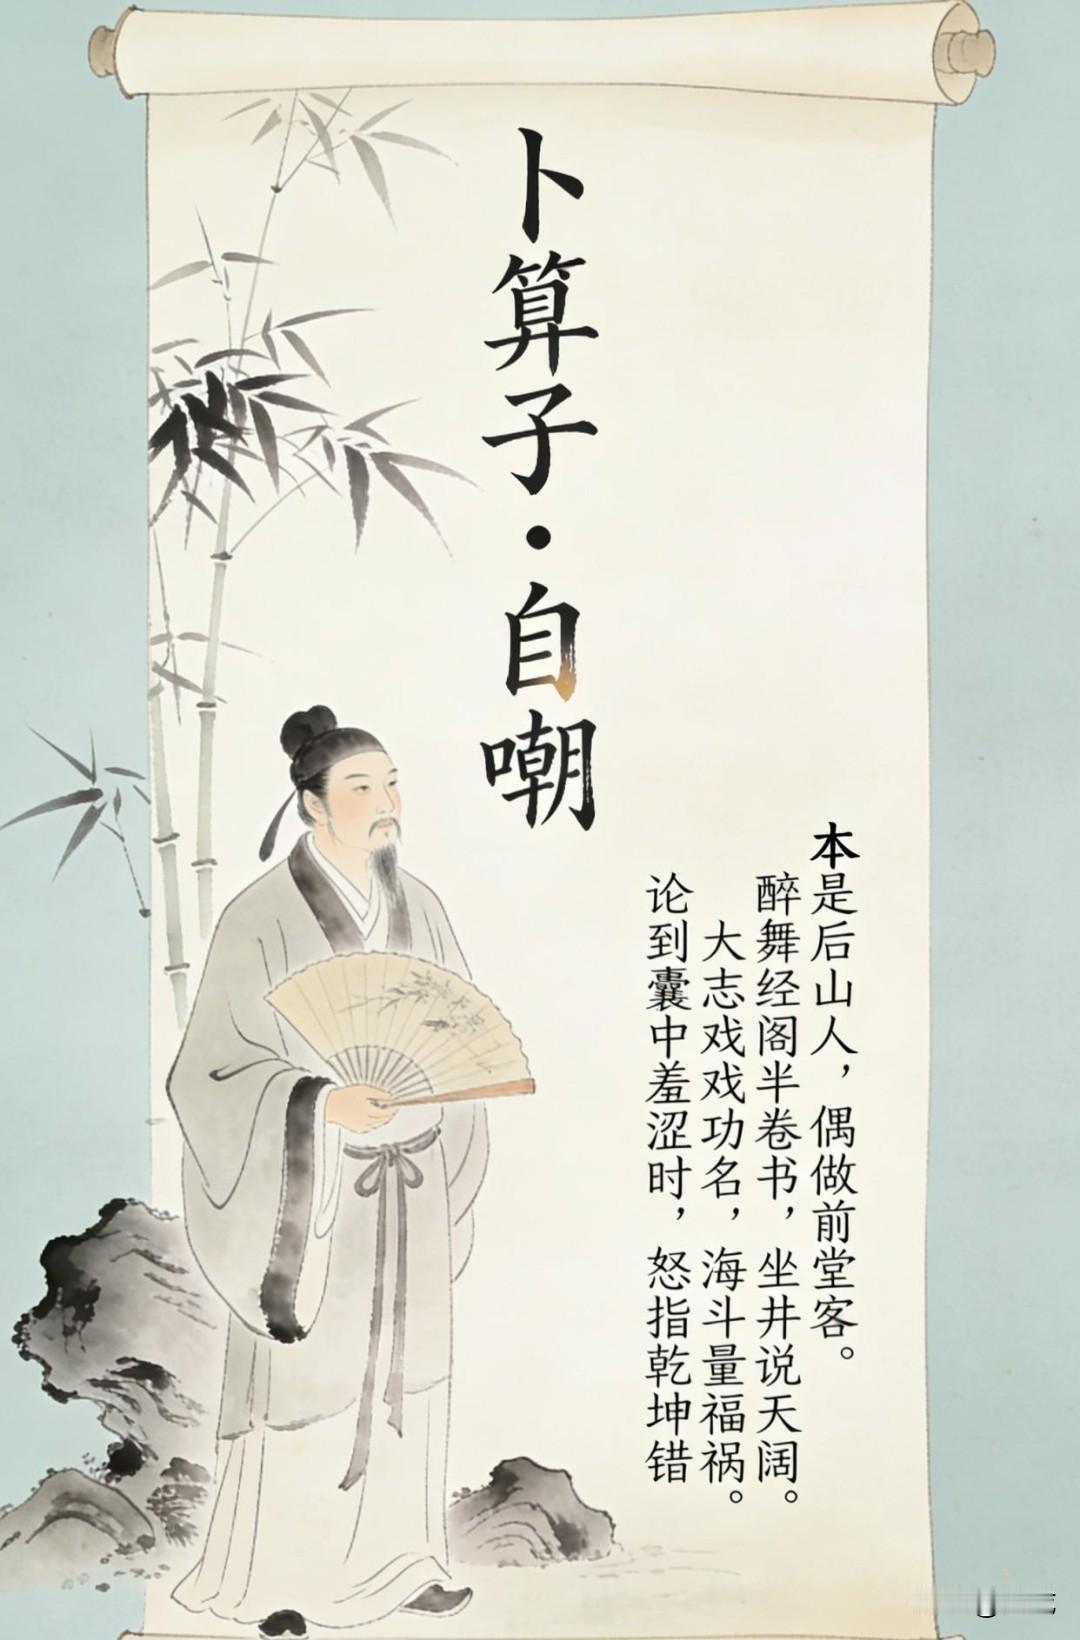 卜算子·自嘲
本是后山人，偶做前堂客。
醉舞经阁半卷书，坐井说天阔。
大志戏戏功名，海斗量福祸。
论到囊中羞涩时，怒指乾坤错